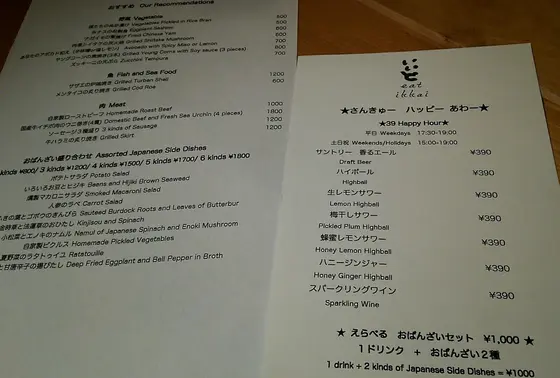 おすすめ Our Recommendations
野菜 Vegetable
Vegetables Pickled in Rice Bran 500
Eggplant Sashimi 500
Fried Chinese Yam 800
Grilled Shiitake Mushroom 700
Avocado with Spicy Miso or Lemon 700
Grilled Young Corns with Soy sauce (3 pieces) 600
ズッキーニの天ぷら Zucchini Tempura 700
魚 Fish and Sea Food
サザエの炉端焼き Grilled Turban Shell 1200
メンタイコの炙り焼き Grilled Cod Roe 600
肉 Meat
自家製ローストビーフ Homemade Roast Beef 1000
Domestic Beef and Fresh Sea Urchin (4 pieces) 1800
ソーセージ3種盛り 3 kinds of Sausage 1200
牛ハラミの炙り焼き Grilled Skirt 1200
おばんざい盛り合わせ Assorted Japanese Side Dishes
kinds ¥800/ 3 kinds ¥1200/ 4 kinds ¥1500/ 5 kinds ¥1700/ 6 kinds ¥1800
ポテトサラダ Potato Salad
いろいろお豆とヒジキ Beans and Hijiki Brown Seaweed
燻製マカロニサラダ Smoked Macaroni Salad
人参のラペ Carrot Salad
きの葉とゴボウのきんぴら Sauteed Burdock Roots and Leaves of Butterbur
金時草と法蓮草のおひたし Kinjisou and Spinach
小松菜とエノキのナムル Namul of Japanese Spinach and Enoki Mushroom
自家製ピクルス Homemade Pickled Vegetables
夏野菜のラタトゥイユ Ratatouille
と甘唐辛子の揚げびたし Deep Fried Eggplant and Bell Pepper in Broth
eat
ikkai
★さんきゅー ハッピー あわー★
★39 Happy Hour★
平日 Weekdays 17:30-19:00
土日祝 Weekends/Holidays 15:00-19:00
サントリー 香るエール ¥390
Draft Beer
ハイボール ¥390
Highball
生レモンサワー ¥390
Lemon Highball
梅干しサワー ¥390
Pickled Plum Highball
蜂蜜レモンサワー ¥390
Honey Lemon Highball
ハニージンジャー ¥390
Honey Ginger Highball
スパークリングワイン ¥390
Sparkling Wine
★ えらべる おばんざいセット ¥1,000 ★
1ドリンク + おばんざい2種
1 drink + 2 kinds of Japanese Side Dishes = ¥1000